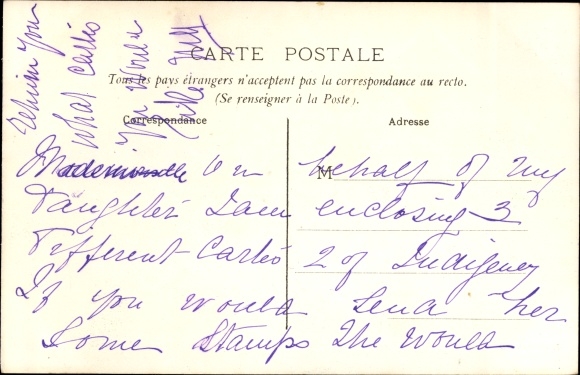 CARTE POSTALE
Tous les pays étrangers n'acceptent pas la correspondance au recto.
(Se renseigner à la Poste).
Correspondance
Adresse
M
Mademoiselle On behalf of my
Daughter I am enclosing 3
Different Cartes 2 of Indigeney
If you would Send her
Some Stamps She would
you
what cartes
you would
like